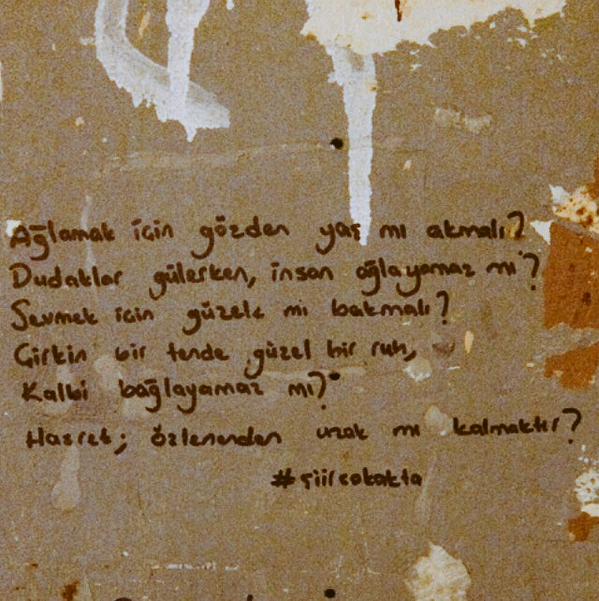 Ağlamak için gözden yaş mı akmalı?
Dudaklar gülerken, insan ağlayamaz mı?
Sevmek için güzele mi bakmalı?
Çirkin bir tende güzel bir ruh,
Kalbi bağlayamaz mı?
Hasret; özlenenden uzak mı kalmaktır?
#şiirsokakta